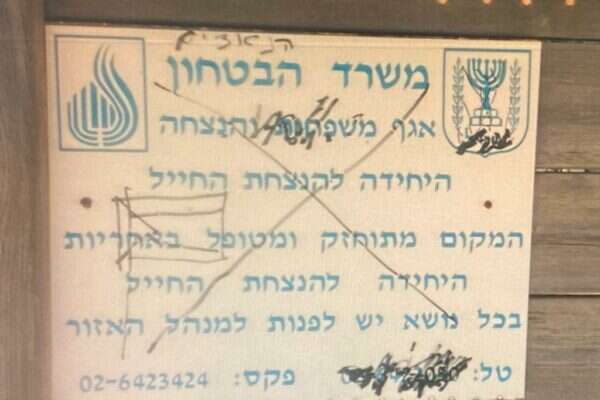 הנאצים
משרד הבטחון
אגף משפחות והנצחה
היחידה להנצחת החייל
המקום מתוחזק ומטופל באחריות
היחידה להנצחת החייל
בכל נושא יש לפנות למנהל האזור
טל: פקס: 02-6423424